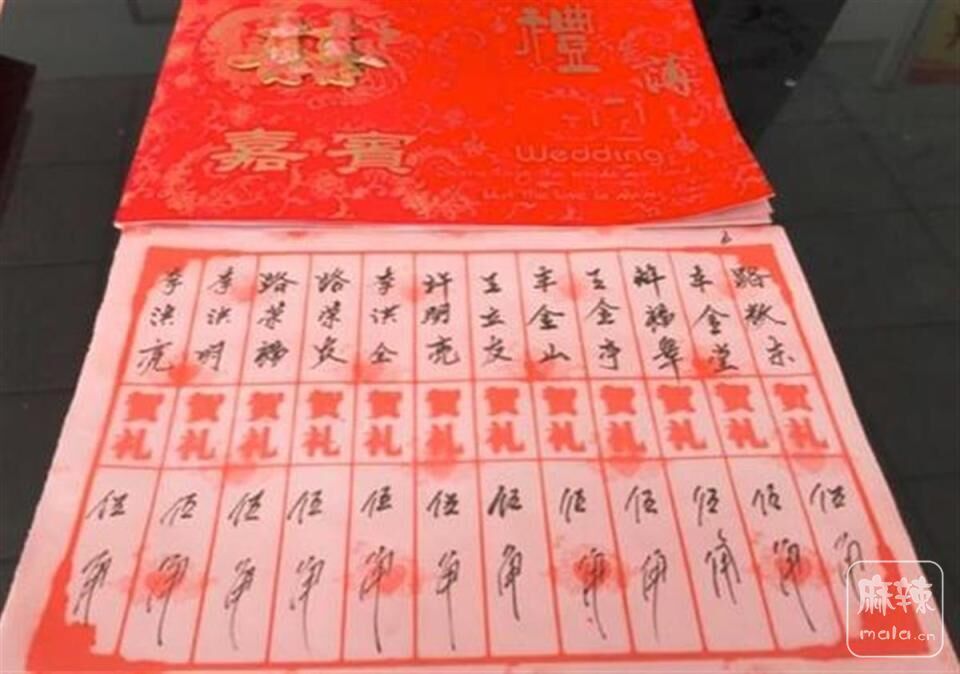 囍
禮簿
嘉賓
Wedding
路敬东 贺礼 伍角
车金堂 贺礼 伍角
福 贺礼 伍角
王金亭 贺礼 伍角
车金山 贺礼 伍角
王立友 贺礼 伍角
许明亮 贺礼 伍角
李洪全 贺礼 伍角
路荣发 贺礼 伍角
路荣福 贺礼 伍角
李洪明 贺礼 伍角
李洪亮 贺礼 伍角
麻辣
mala.cn